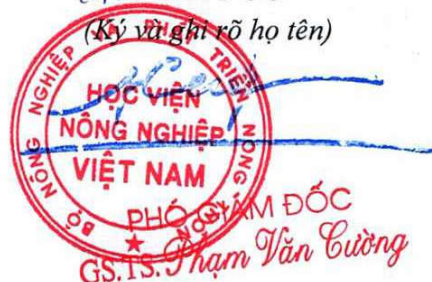 (Ký và ghi rõ họ tên)
BỘ NÔNG NGHIỆP VÀ PHÁT TRIỂN NÔNG THÔN
HỌC VIỆN
NÔNG NGHIỆP
VIỆT NAM
PHÓ GIÁM ĐỐC
GS.TS. Phạm Văn Cường